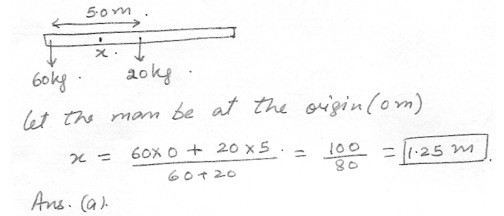 5.0 m.
x.
60kg. 20kg.
let the man be at the origin (0m)
x = \frac{60×0 + 20×5.}{60+20} = \frac{100}{80} = 1.25 m.
Ans. (a).